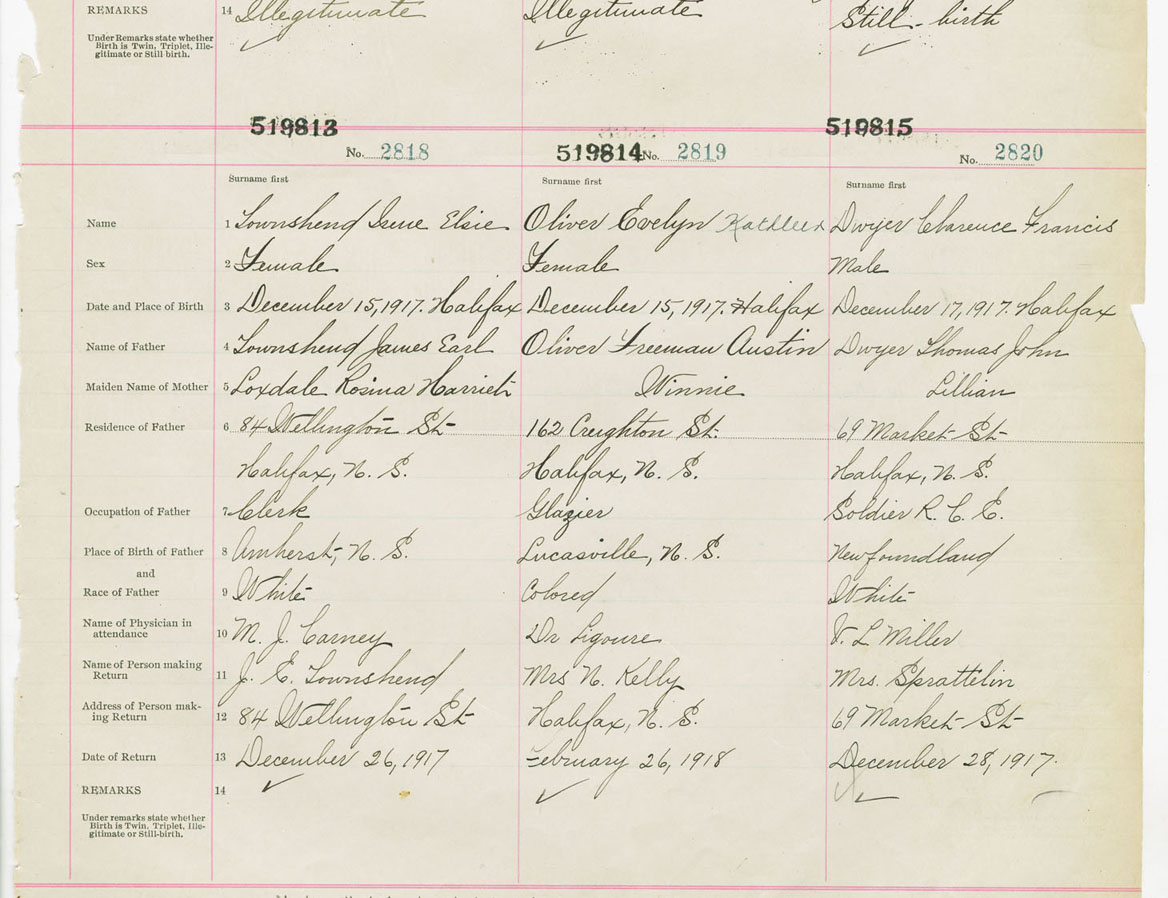 REMARKS 14 Illegitimate Illegitimate Still-birth
Under Remarks state whether
Birth is Twin, Triplet, Ille-
gitimate or Still-birth.
519813 519815
No. 2818 519814 No. 2819 No. 2820
Surname first Surname first Surname first
Name 1 Townshend Elsie Oliver Evelyn Kathleen Dwyer Clarence Francis
Sex 2 Female Female Male
Date and Place of Birth 3 December 15, 1917. Halifax December 15, 1917. Halifax December 17, 1917. Halifax
Name of Father 4 Townshend James Earl Oliver Freeman Austin Dwyer Thomas John
Maiden Name of Mother 5 Loxdale Rosina Harriet Winnie Lillian
Residence of Father 6 84 Wellington St 162 Creighton St. 69 Market St
Halifax, N. S. Halifax, N. S. Halifax, N. S.
Occupation of Father 7 Clerk Glazier Soldier R. C. E.
Place of Birth of Father 8 Amherst, N. S. Lucasville, N. S. Newfoundland
and
Race of Father 9 White Colored White
Name of Physician in
attendance 10 M. J. Carney Dr Ligoure V. L Miller
Name of Person making
Return 11 J. E. Townshend Mrs N. Kelly Mrs. Sprattelin
Address of Person mak-
ing Return 12 84 Wellington St Halifax, N. S. 69 Market St
Date of Return 13 December 26, 1917 February 26, 1918 December 28, 1917.
REMARKS 14
Under remarks state whether
Birth is Twin, Triplet, Ille-
gitimate or Still-birth.